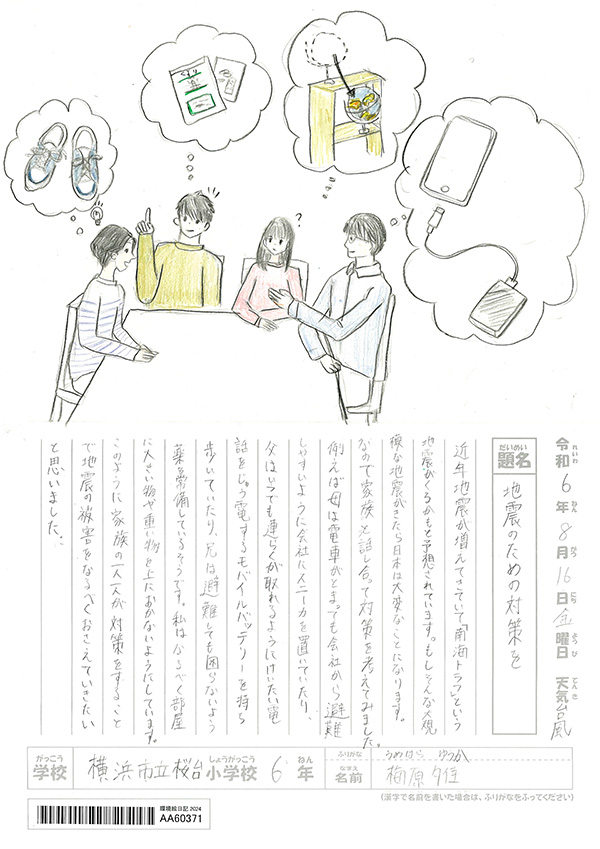 令和6年8月16日金曜日 天気台風
題名 地震のための対策を
近年地震が増えてきていて「南海トラフ」という
地震がくるかもと予想されています。もしそんな大規
模な地震がきたら日本は大変なことになります。
なので家族と話し合って対策を考えてみました。
例えば母は電車がとまっても会社から避難
しやすいように会社にスニーカを置いていたり、
父はいつでも連らくが取れるようにけいたい電
話をじゅう電するモバイルバッテリーを持ち
歩いていたり、兄は避難しても困らないよう
薬を常備しているそうです。私はなるべく部屋
に大きい物や重い物を上におかないようにしています。
このように家族の一人一人が対策をすること
で地震の被害をなるべくおさえていきたい
と思いました。
学校 横浜市立桜台小学校 6年
ふりがな うめはら ゆうか
名前 梅原 夕佳
(漢字で名前を書いた場合は、ふりがなをふってください)
環境絵日記 2024
AA60371